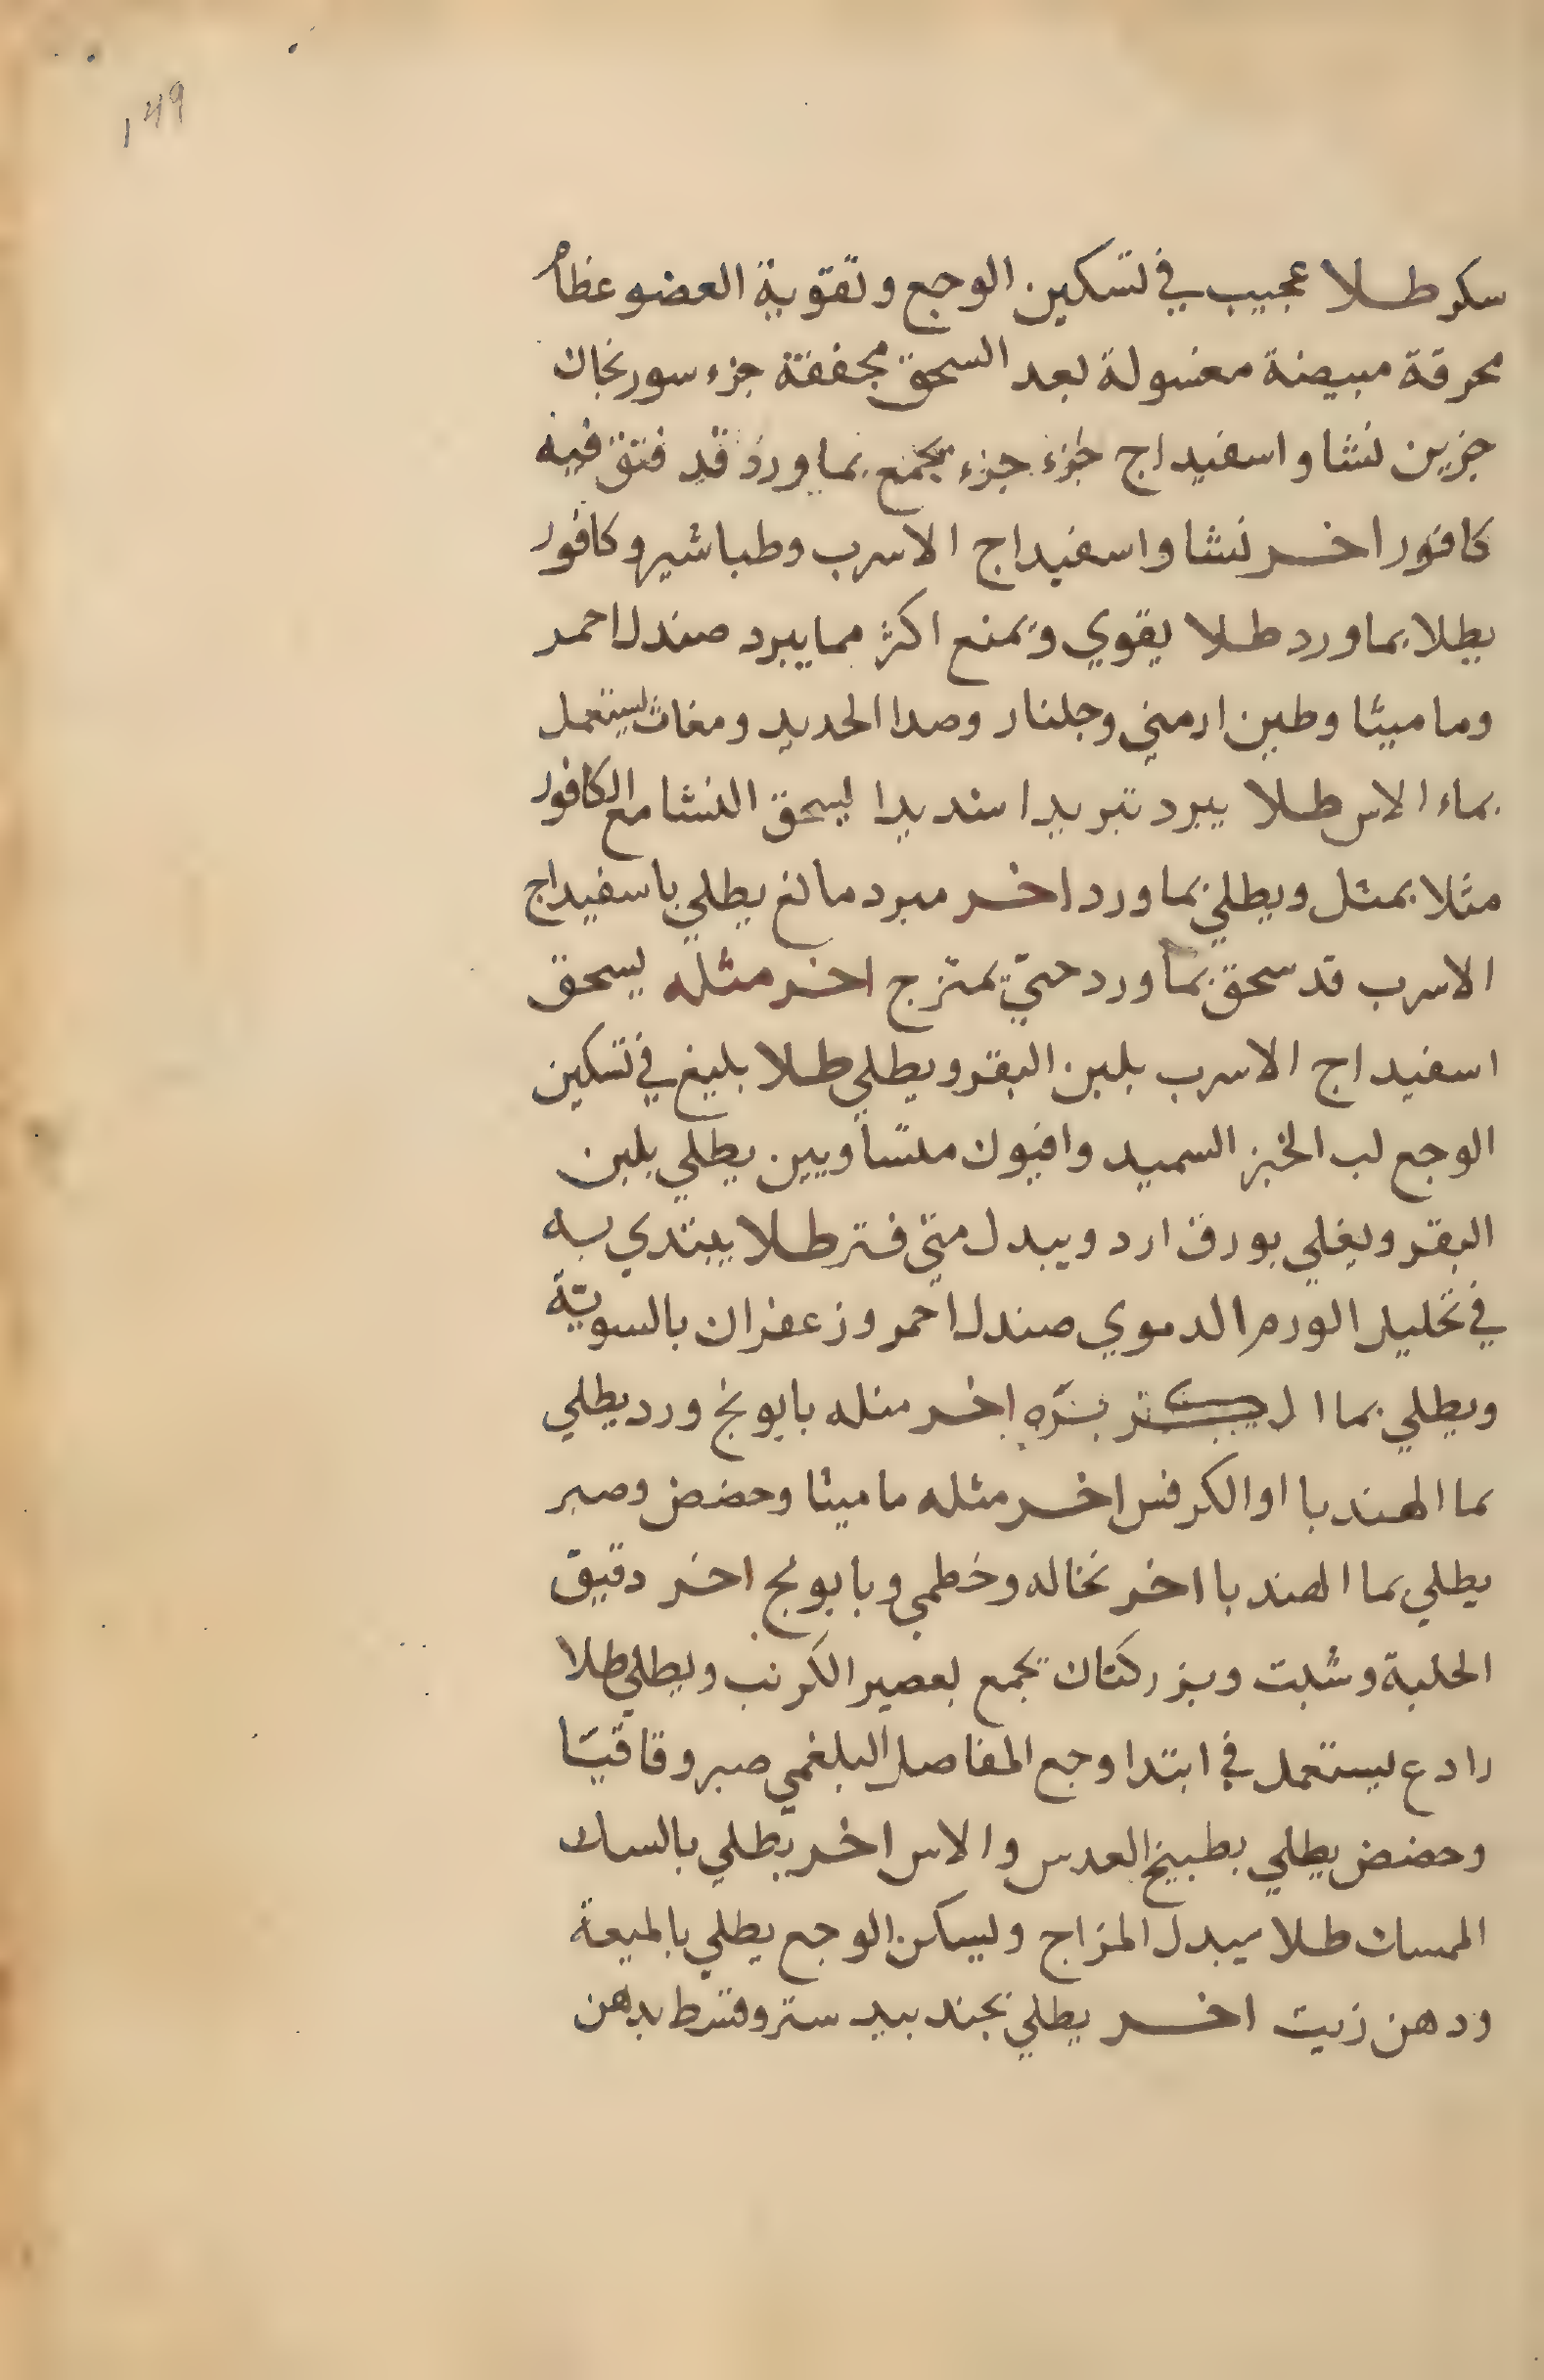 149
سكر طلا عجيب في تسكين الوجع وتقوية العضو عظام
محرقة مبيضة مغسولة بعد السحق مجففة جزء سورنجان
جزين نشا واسفيداج جزء جزء يجمع بماورد قد فتق فيه
كافور اخر نشا واسفيداج الاسرب وطباشير وكافور
يطلا بماورد طلا يقوي ويمنع اكثر مما يبرد صندل احمر
وماميثا وطين ارمني وجلنار وصدا الحديد ومغاث يستعمل
بماء الاس طلا يبرد تبريدا شديدا يسحق النشا مع الكافور
مثلا بمثل ويطلي بماورد اخر مبرد مالغ يطلي باسفيداج
الاسرب قد سحق بماورد حتي يمتزج اخر مثله يسحق
اسفيداج الاسرب بلبن البقر ويطلي طلا بليغ في تسكين
الوجع لب الخبز السميد وافيون متساويين يطلي بلبن
البقر ويغلي بورق ارد ويبدل متي فتر طلا يبتدي به
في تحليل الورم الدموي صندل احمر وزعفران بالسويّة
ويطلي بما اخر مثله بابونج ورد يطلي
بما الهندبا او الكرفس اخر مثله ماميثا وحضض وصبر
يطلي بما الهندبا اخر نخاله وخطمي وبابونج اخر دقيق
الحلبة وشبت وبزر كتان يجمع بعصير الكرنب ويطلي طلا
رادع يستعمل في ابتدا وجع المفاصل البلغمي صبر وقاقيَا
وحضض يطلي بطبيخ العدس والاس اخر يطلي بالسك
الممسك طلا يبدل المزاج ويسكن الوجع يطلي بالميعة
ودهن زيت اخر يطلي بجند بيد ستر وقسط بدهن